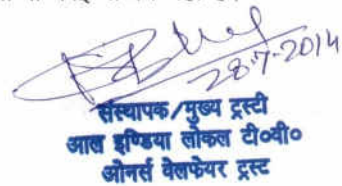 28-7-2014
संस्थापक/मुख्य ट्रस्टी
आल इण्डिया लोकल टी०वी०
ओनर्स वेलफेयर ट्रस्ट